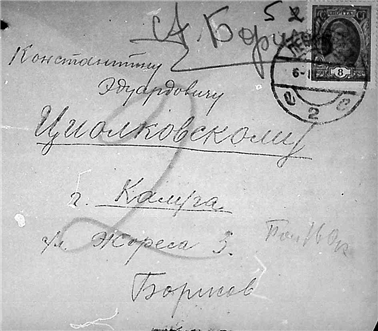 5 х
А. Бори
8
6-
2
Константину
Эдуардовичу
Циолковскому
г. Калуга
ул Жореса 3.
Борисов
2